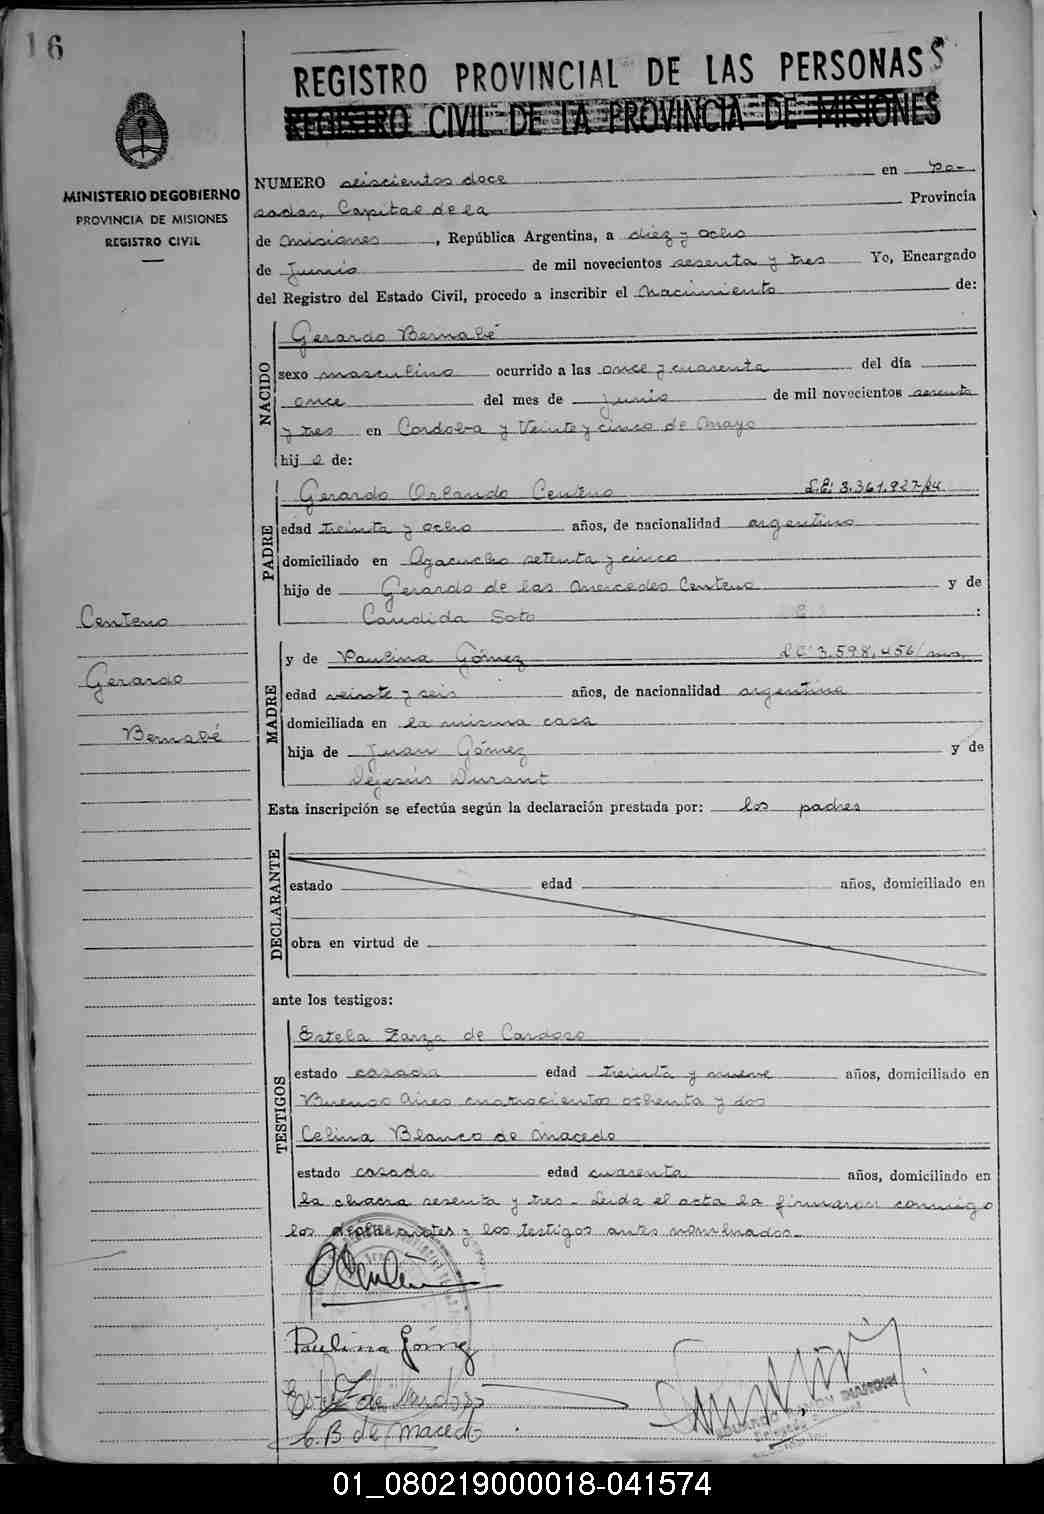 16
REGISTRO PROVINCIAL DE LAS PERSONAS
REGISTRO CIVIL DE LA PROVINCIA DE MISIONES
MINISTERIO DE GOBIERNO
PROVINCIA DE MISIONES
REGISTRO CIVIL
NUMERO seiscientos doce en Po-
sadas, Capital de la Provincia
de Misiones, República Argentina, a diez y ocho
de Junio de mil novecientos sesenta y tres Yo, Encargado
del Registro del Estado Civil, procedo a inscribir el Nacimiento de:
NACIDO
Gerardo Bernabé
sexo masculino ocurrido a las once y cuarenta del día
once del mes de junio de mil novecientos sesenta
y tres en Cordoba y Veinte y cinco de Mayo
hijo de:
PADRE
Gerardo Orlando Centeno L.E: 3.361.927
edad treinta y ocho años, de nacionalidad argentino
domiciliado en Ayacucho setenta y cinco
hijo de Gerardo de las Mercedes Centeno y de
Candida Soto :
Centeno
Gerardo
Bernabé
MADRE
y de Paulina Gómez LC 3.598.456/mns.
edad veinte y seis años, de nacionalidad argentina
domiciliada en la misma casa
hija de Juan Gómez y de
Dejesús Durant
Esta inscripción se efectúa según la declaración prestada por: los padres
DECLARANTE
estado edad años, domiciliado en
obra en virtud de
ante los testigos:
TESTIGOS
Estela Zarza de Cardoso
estado casada edad treinta y nueve años, domiciliado en
Buenos Aires cuatrocientos ochenta y dos
Celina Blanco de Macedo
estado casada edad cuarenta años, domiciliado en
la chacra sesenta y tres - Leida el acta la firmaron conmigo
los declarantes y los testigos antes nombrados.-
OCenteno
Paulina Gómez
Este Z de Cardoso
C. B. de Macedo
01_080219000018-041574